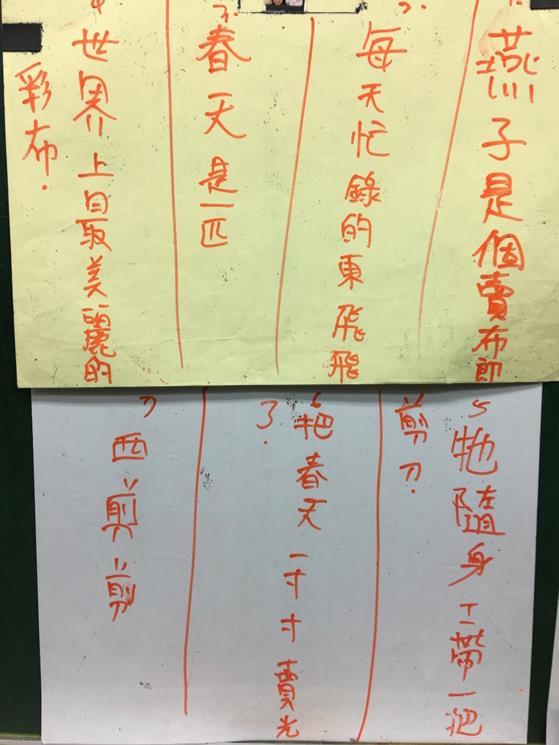 燕子是個賣布郎
2.每天忙錄的東飛飛
3春天是一匹
4世界上最美麗的
彩布.
5牠隨身帶一把
剪刀.
6把春天一寸寸賣光
了.
7西剪剪